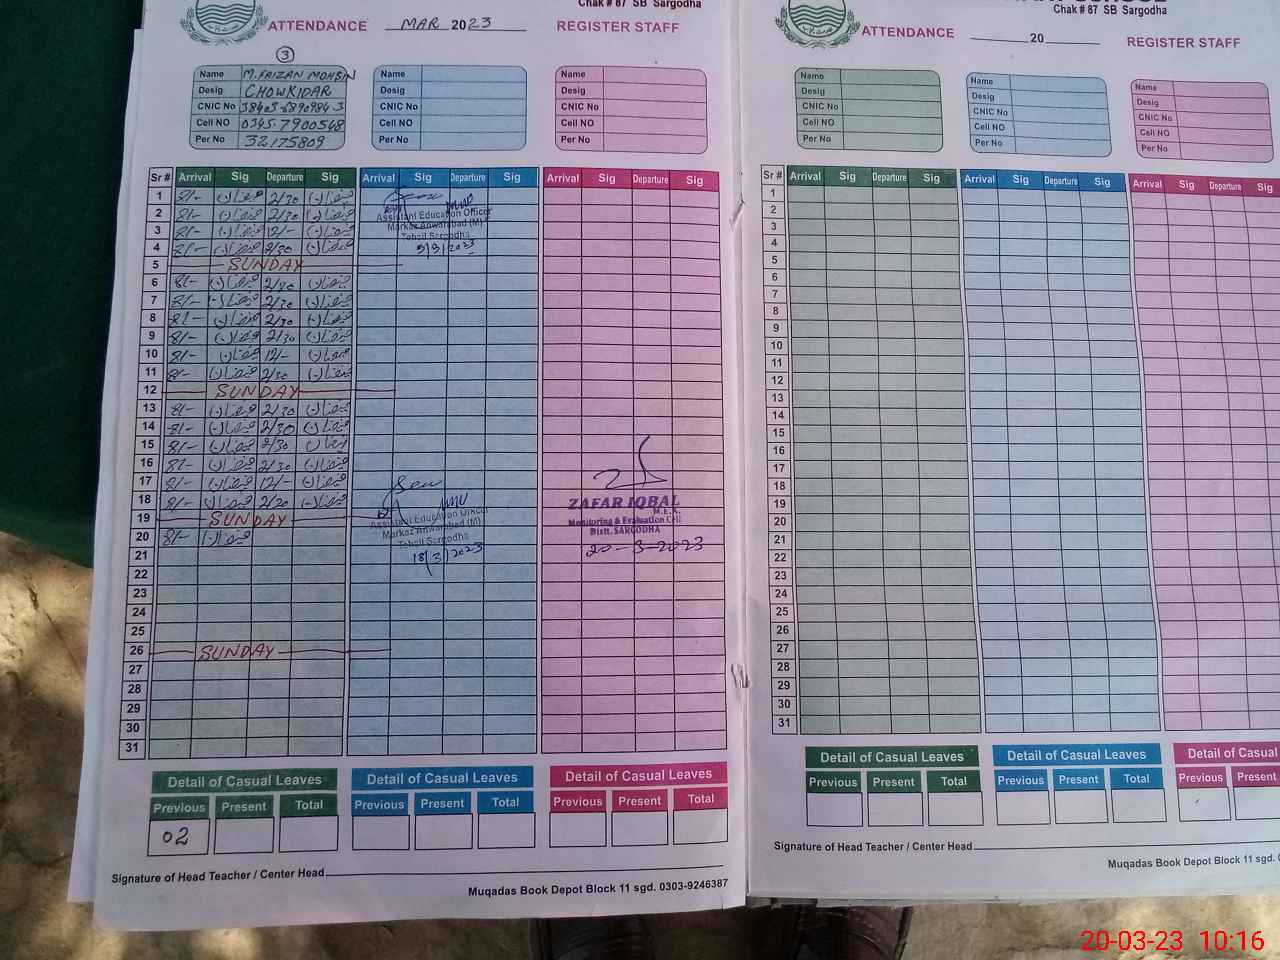 Chak # 87 SB Sargodha
ATTENDANCE MAR 2023 REGISTER STAFF
3
Name M. FAIZAN MOHSIN
Desig CHOWKIDAR
CNIC No
Cell NO 0345-7900548
Per No 32175809
Name
Desig
CNIC No
Cell NO
Per No
Name
Desig
CNIC No
Cell NO
Per No
Sr # Arrival Sig Departure Sig Arrival Sig Departure Sig Arrival Sig Departure Sig
1 8/- فیضان 2/30 فیضان
2 8/- فیضان 2/30 فیضان
3 8/- فیضان 12/- فیضان
4 8/- فیضان 2/30 فیضان
5 SUNDAY
6 8/- فیضان 2/30 فیضان
7 8/- فیضان 2/30 فیضان
8 8/- فیضان 2/30 فیضان
9 8/- فیضان 2/30 فیضان
10 8/- فیضان 12/- فیضان
11 8/- فیضان 2/30 فیضان
12 SUNDAY
13 8/- فیضان 2/30 فیضان
14 8/- فیضان 2/30 فیضان
15 8/- فیضان 2/30 فیضان
16 8/- فیضان 2/30 فیضان
17 8/- فیضان 12/- فیضان
18 8/- فیضان 2/30 فیضان
19 SUNDAY
20 8/- فیضان
21
22
23
24
25
26 SUNDAY
27
28
29
30
31
Assistant Education Officer
Markaz Anwarabad (M)
Tehsil Sargodha
9/3/2023
Assistant Education Officer
Markaz Anwarabad (M)
Tehsil Sargodha
18/3/2023
ZAFAR IQBAL
M.E.A.
Monitoring & Evaluation Cell
Distt. SARGODHA
20-3-2023
Detail of Casual Leaves Detail of Casual Leaves Detail of Casual Leaves
Previous Present Total Previous Present Total Previous Present Total
02
Signature of Head Teacher / Center Head
Muqadas Book Depot Block 11 sgd. 0303-9246387
SCHOOL
Chak # 87 SB Sargodha
ATTENDANCE 20 REGISTER STAFF
Name
Desig
CNIC No
Cell NO
Per No
Name
Desig
CNIC No
Cell NO
Per No
Name
Desig
CNIC No
Cell NO
Per No
Sr # Arrival Sig Departure Sig Arrival Sig Departure Sig Arrival Sig Departure Sig
1
2
3
4
5
6
7
8
9
10
11
12
13
14
15
16
17
18
19
20
21
22
23
24
25
26
27
28
29
30
31
Detail of Casual Leaves Detail of Casual Leaves Detail of Casual
Previous Present Total Previous Present Total Previous Present
Signature of Head Teacher / Center Head
Muqadas Book Depot Block 11 sgd.
20-03-23 10:16